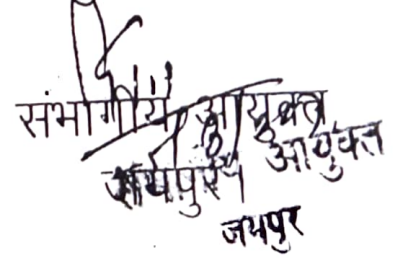 संभागीय आयुक्त
जयपुर आयुक्त
जयपुर